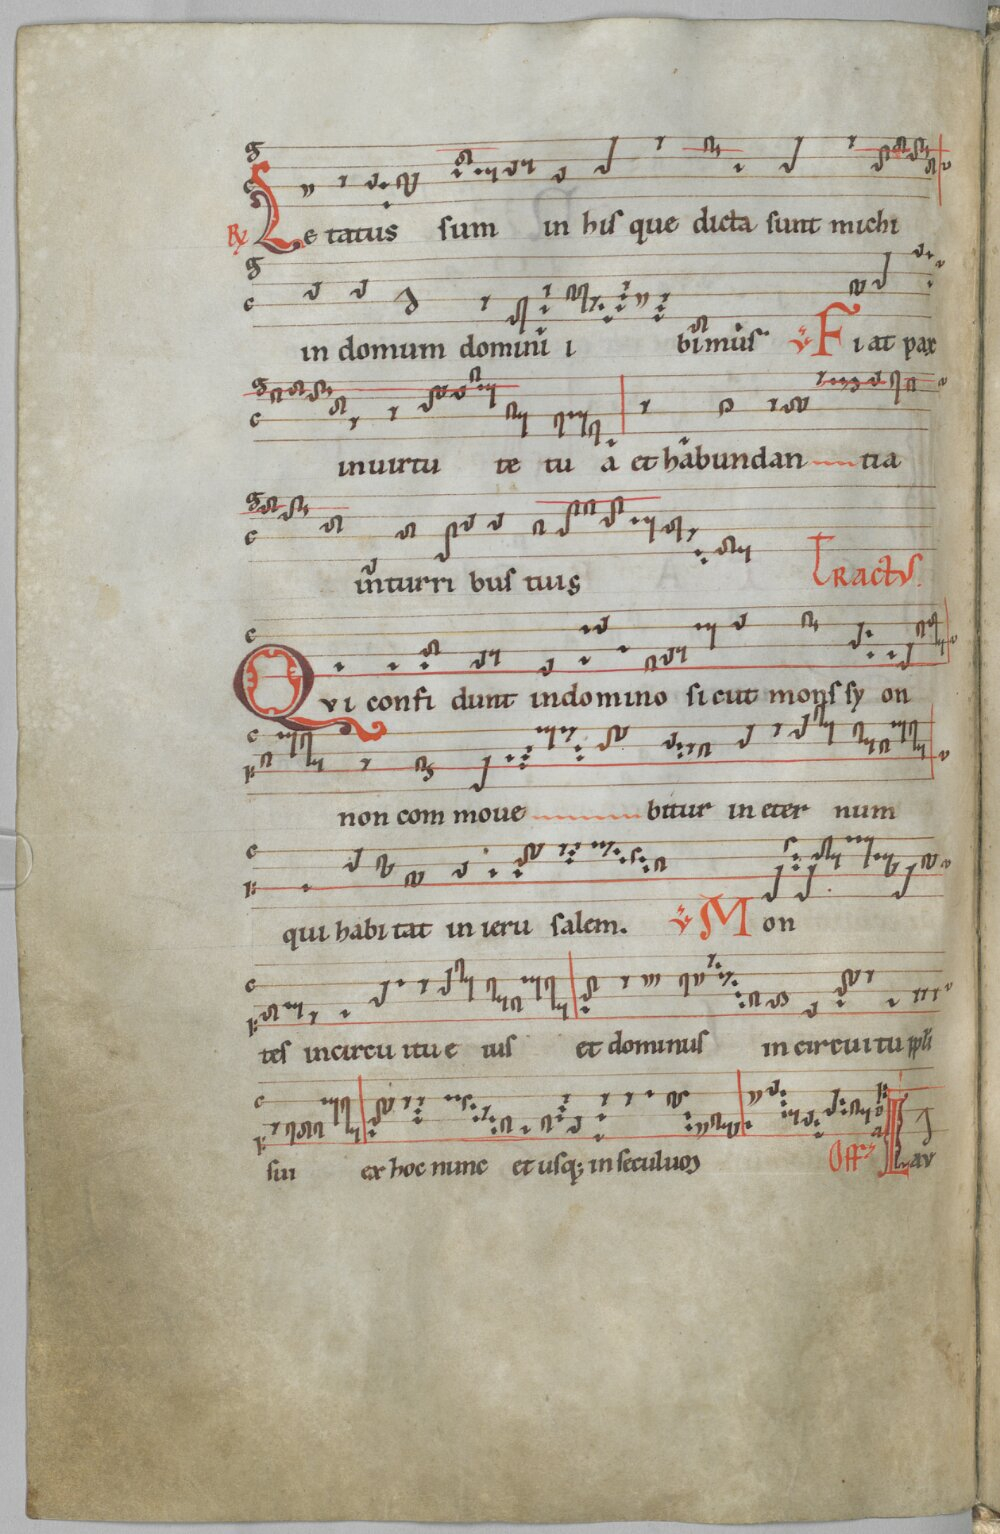 R Letatus sum in his que dicta sunt michi
in domum domini i bimus. V Fiat pax
inuirtu te tu a et habundan tia
inturri bus tuis Tractus.
Qvi confi dunt indomino sicut mons sy on
non com moue bitur in eter num
qui habi tat in ieru salem. V Mon
tes incircu itu e ius et dominus in circuitu ppli
sui ex hoc nunc et usq; in seculum Off Lau